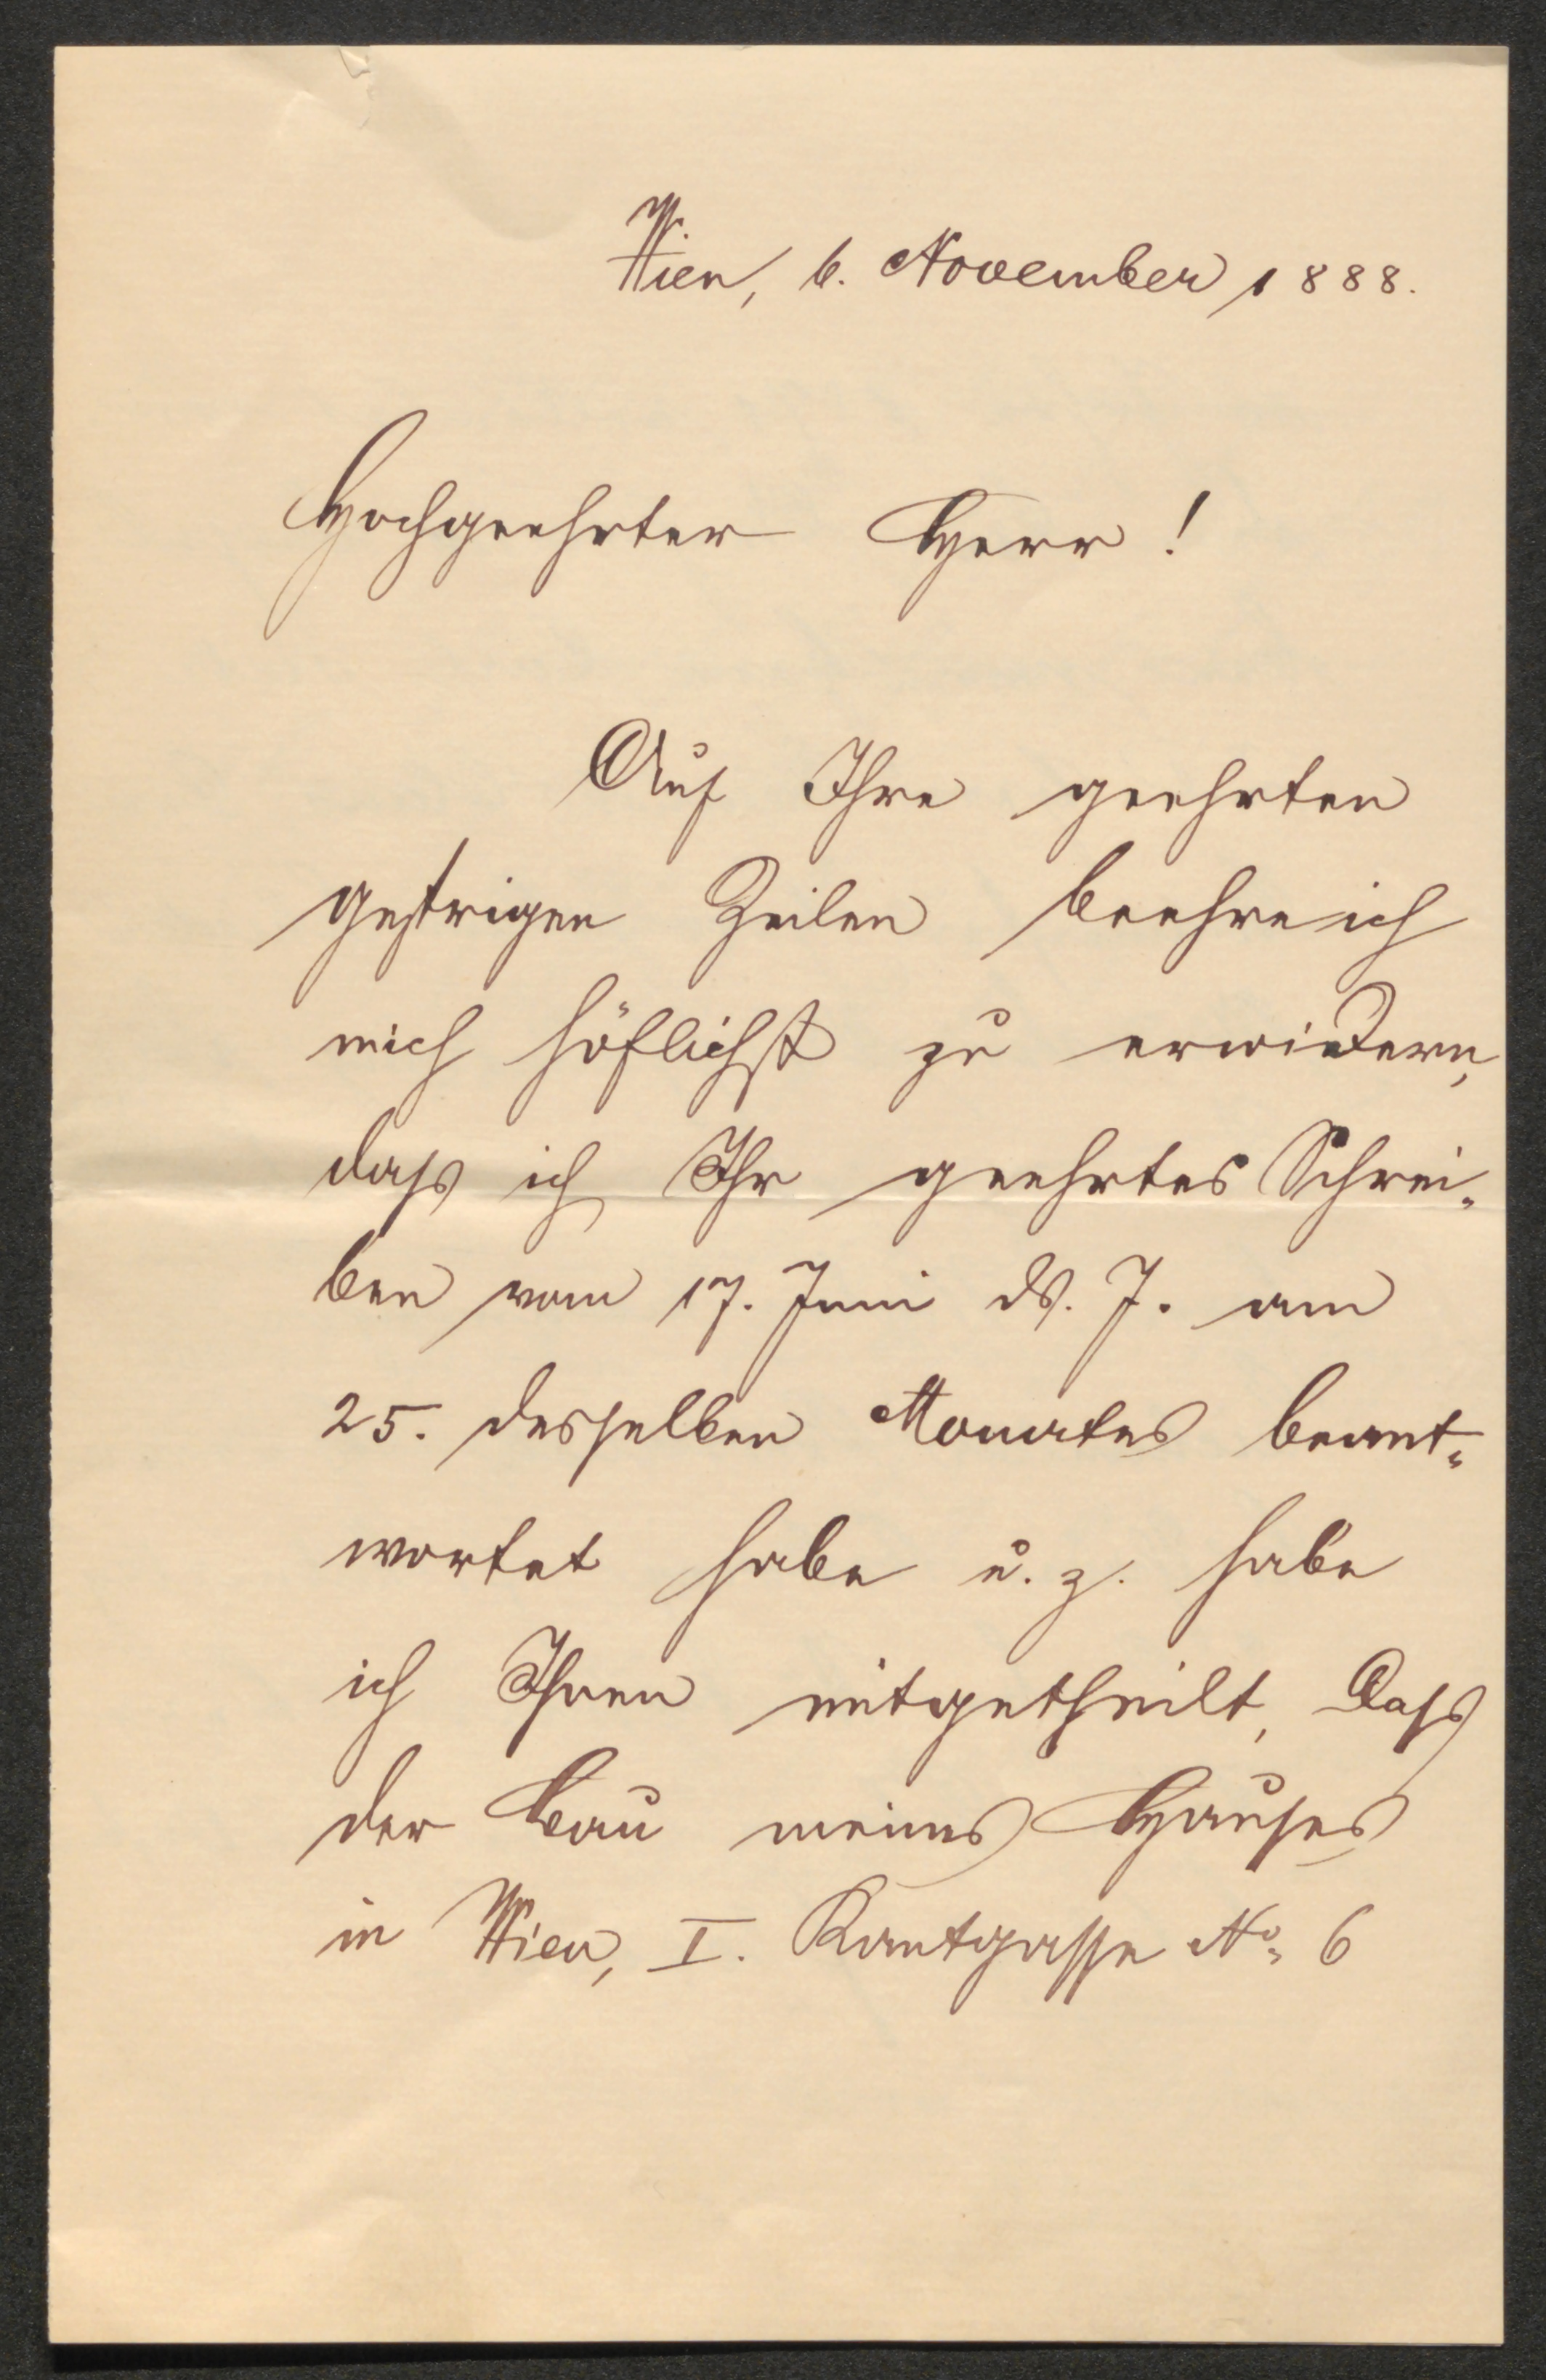 Wien, 6. November 1888.
Hochgeehrter Herr!
Auf Ihre geehrten
gestrigen Zeilen beehre ich
mich höflichst zu erwiedern,
dass ich Ihr geehrtes Schrei-
ben vom 17. Juni ds. J. am
25. desselben Monates beant-
wortet habe u. z. habe
ich Ihnen mitgetheilt, dass
der Bau meines Hauses
in Wien, I. Kantgasse No. 6